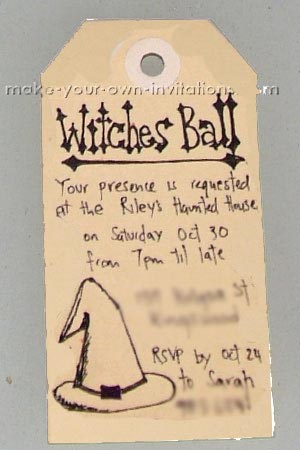 make-your-own-invitations.com
Witches Ball
Your presence is requested
at the Riley's Haunted House
on Saturday Oct 30
from 7pm til late
St
RSVP by Oct 24
to Sarah